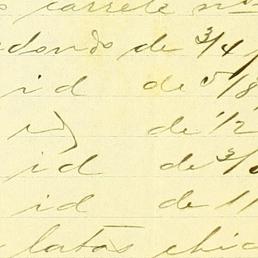 s carrete no
edondo de 3/4
id de 5/8
id de 1/2
id de 3/8
id de 11
latas chic